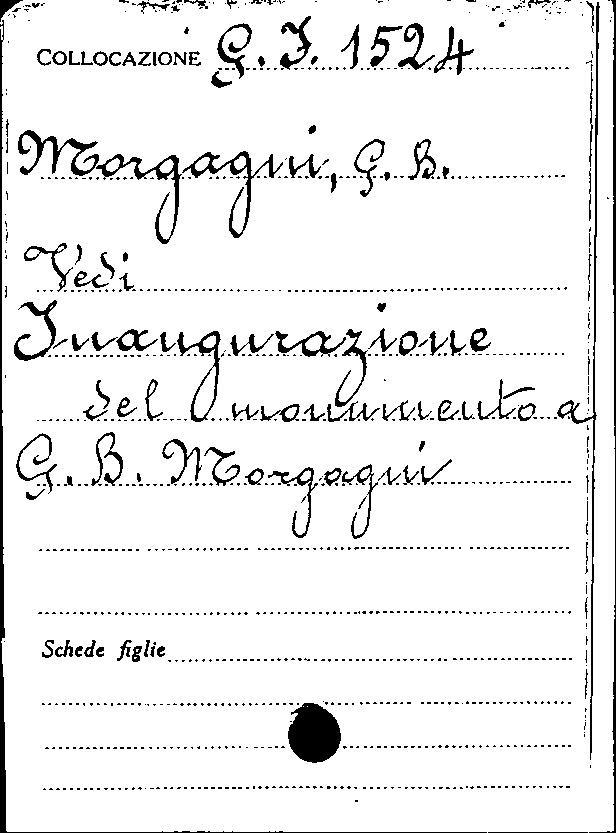 COLLOCAZIONE G. I. 1524
Morgagni, G. B.
Vedi
Inaugurazione
del monumento a
G. B. Morgagni
Schede figlie